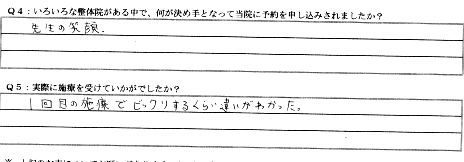 Q4：いろいろな整体院がある中で、何が決め手となって当院に予約を申し込みされましたか？
先生の笑顔.
Q5：実際に施療を受けていかがでしたか？
1回目の施療でビックリするくらい違いがわかった。